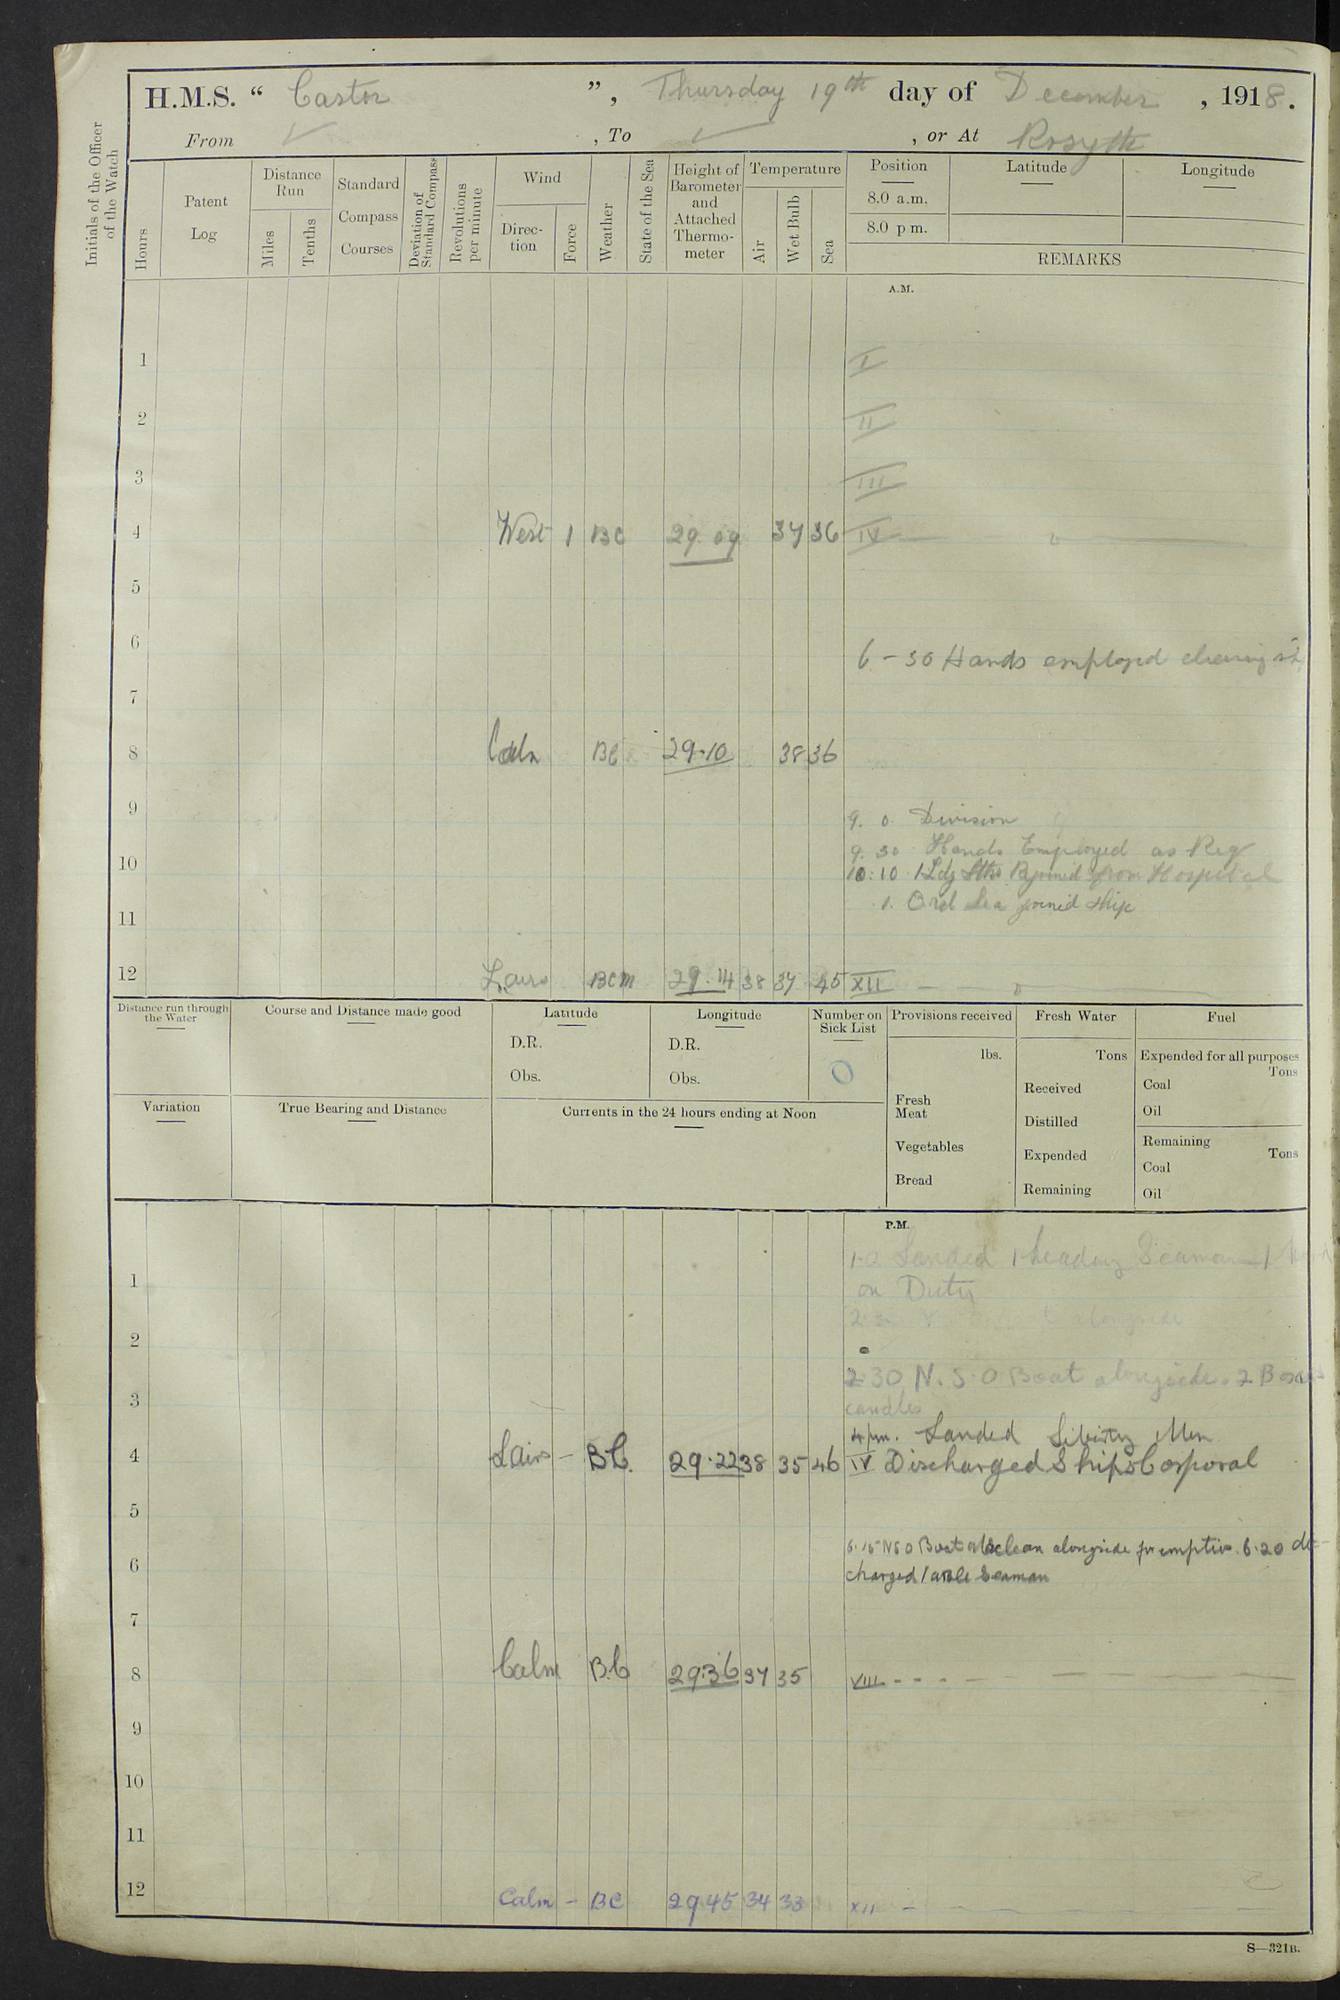 H.M.S. “ Castor ”, Thursday 19th day of December , 1918.
From ✓ , To ✓ , or At Rosyth
Initials of the Officer of the Watch
Hours
Patent Log
Distance Run
Miles
Tenths
Standard Compass Courses
Deviation of Standard Compass
Revolutions per minute
Wind
Direc-tion
Force
Weather
State of the Sea
Height of Barometer and Attached Thermo-meter
Temperature
Air
Wet Bulb
Sea
Position
8.0 a.m.
8.0 p m.
Latitude
Longitude
REMARKS
A.M.
1 I
2 II
3 III
4 West 1 BC 29.09 37 36 IV
5
6
6-30 Hands employed
7
8 Calm BC 29.10 38 36
9
9. 0 Division
9. 30 Hands Employed as Req
10
10:10 1 Ldg from Hospital
1. Ord Sea joined ship
11
12 BCM 29.14 38 37 45 XII
Distance run through the Water
Course and Distance made good
Latitude
D.R.
Obs.
Longitude
D.R.
Obs.
Number on Sick List
0
Provisions received
lbs.
Fresh Meat
Vegetables
Bread
Fresh Water
Tons
Received
Distilled
Expended
Remaining
Fuel
Expended for all purposes
Tons
Coal
Oil
Remaining
Tons
Coal
Oil
Variation
True Bearing and Distance
Currents in the 24 hours ending at Noon
P.M.
Landed 1 Leading Seaman
1
on Duty
2
alongside
2.30 N.S.O Boat alongside. 2 Boxes
3
candles
4pm. Landed Liberty Men
4 - B.C. 29.22 38 35 46 IV Discharged Ships Corporal
5
6.15 NSO Boat alongside for empties. 6.20 dis-
6
charged 1 able Seaman
7
8 Calm B.C 29.36 37 35 VIII
9
10
11
12 Calm - BC 29 45 34 33 XII
S—321B.